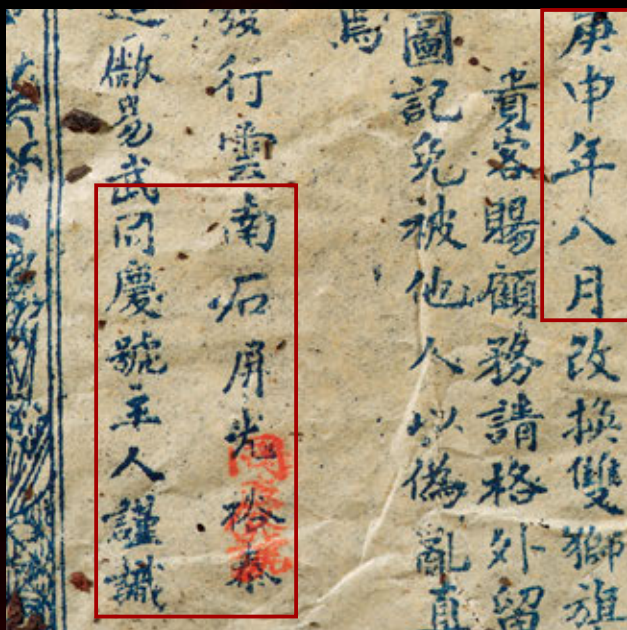 庚申年八月改換雙獅旗
貴客賜顧務請格外留
圖記免被他人以偽亂真
發行雲南石屏光裕泰
徼易武同慶號主人謹識
同慶號